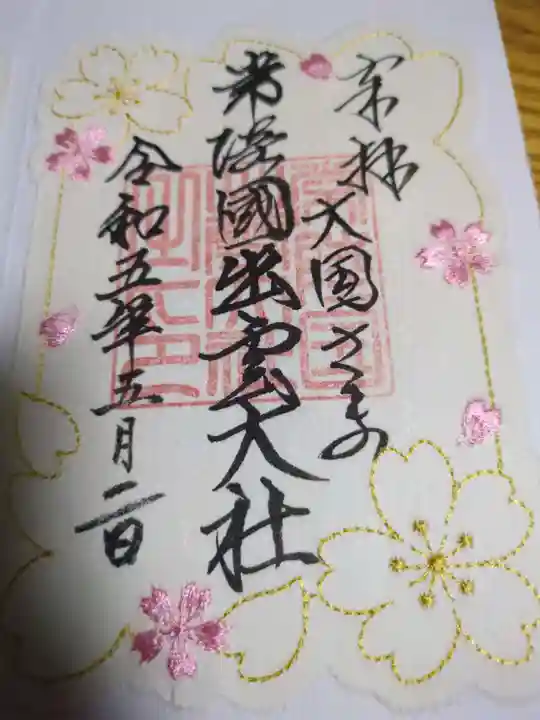 奉拝
大国さま
常陸國出雲大社
令和五年五月二日